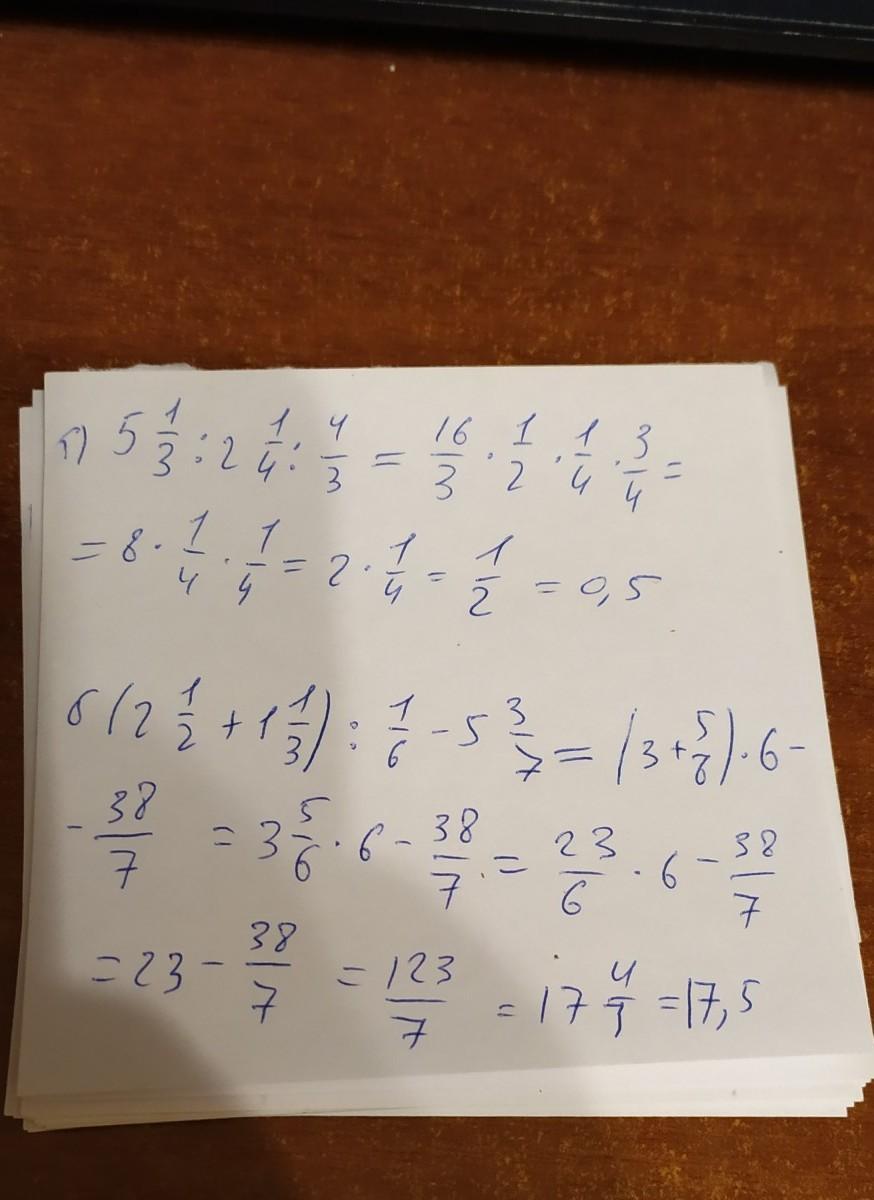 г) 5 1/3 : 2 1/4 : 4/3 = 16/3 · 1/2 · 1/4 · 3/4 =
= 8 · 1/4 · 1/4 = 2 · 1/4 = 1/2 = 0,5
б (2 1/2 + 1 1/3) : 1/6 - 5 3/7 = (3 + 5/6) · 6 -
- 38/7 = 3 5/6 · 6 - 38/7 = 23/6 · 6 - 38/7
= 23 - 38/7 = 123/7 = 17 4/7 = 17,5